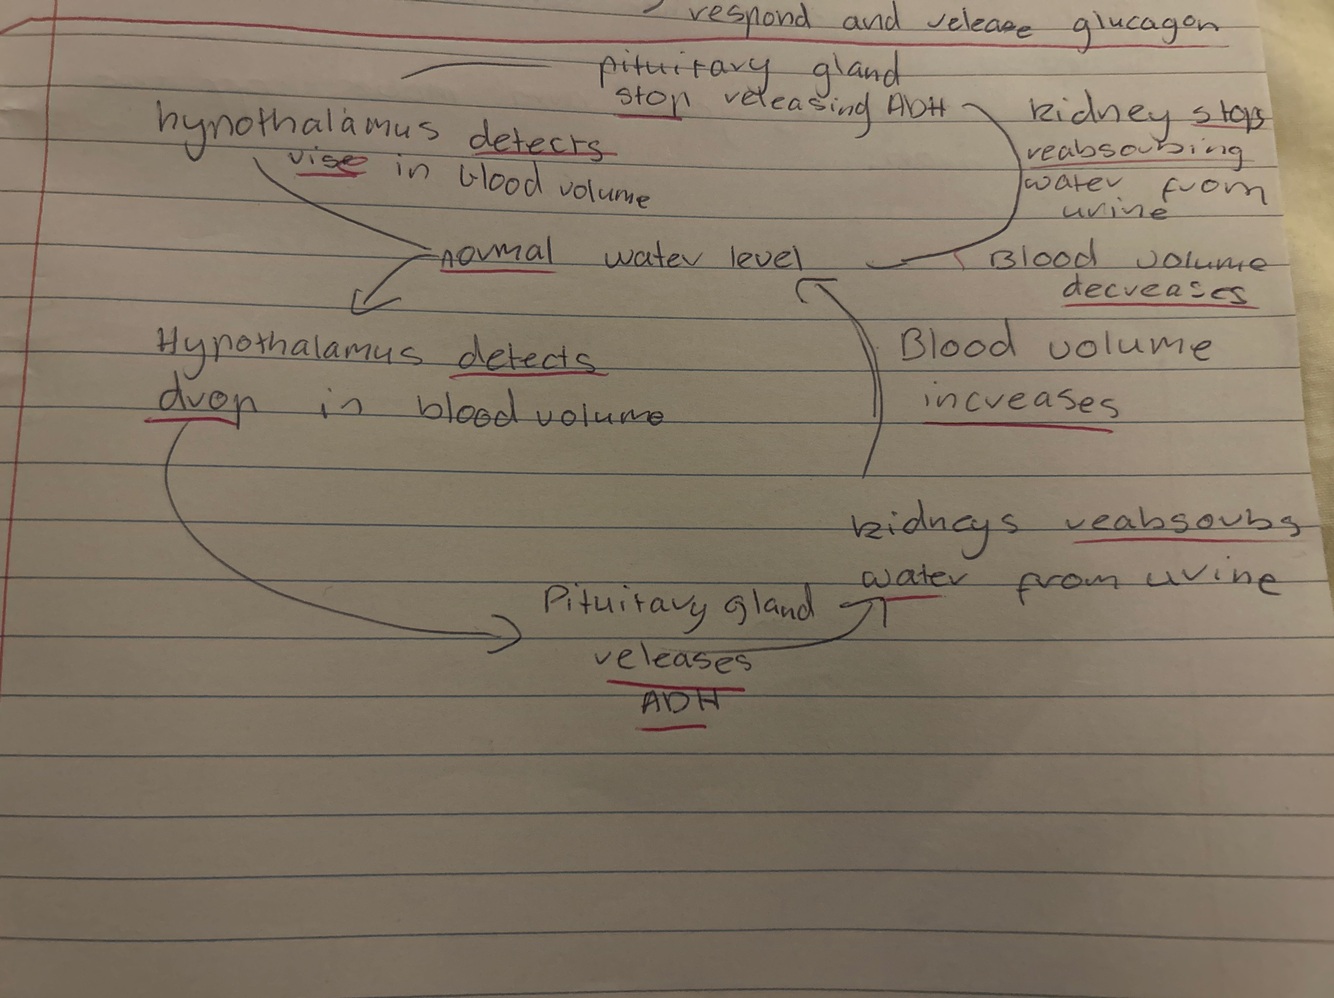 respond and release glucagon
pituitary gland
stop releasing ADH
hypothalamus detects
rise in blood volume
kidney stops
reabsorbing
water from
urine
normal water level
Blood volume
decreases
Hypothalamus detects
drop in blood volume
Blood volume
increases
kidneys reabsorbs
water from urine
Pituitary gland
releases
ADH